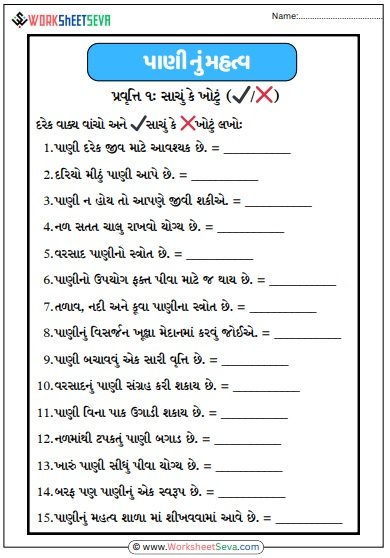 WORKSHEETSEVA
Name:
પાણી નું મહત્વ
પ્રવૃત્તિ ૧: સાચું કે ખોટું (✓/✗)
દરેક વાક્ય વાંચો અને ✓સાચું કે ✗ખોટું લખો:
1.પાણી દરેક જીવ માટે આવશ્યક છે. = __________
2.દરિયો મીઠું પાણી આપે છે. = __________
3.પાણી ન હોય તો આપણે જીવી શકીએ. = __________
4.નળ સતત ચાલુ રાખવો યોગ્ય છે. = __________
5.વરસાદ પાણીનો સ્ત્રોત છે. = __________
6.પાણીનો ઉપયોગ ફક્ત પીવા માટે જ થાય છે. = __________
7.તળાવ, નદી અને કૂવા પાણીના સ્ત્રોત છે. = __________
8.પાણીનું વિસર્જન ખૂલ્લા મેદાનમાં કરવું જોઈએ. = __________
9.પાણી બચાવવું એક સારી વૃત્તિ છે. = __________
10.વરસાદનું પાણી સંગ્રહ કરી શકાય છે. = __________
11.પાણી વિના પાક ઉગાડી શકાય છે. = __________
12.નળમાંથી ટપકતું પાણી બગાડ છે. = __________
13.ખારું પાણી સીધું પીવા યોગ્ય છે. = __________
14.બરફ પણ પાણીનું એક સ્વરૂપ છે. = __________
15.પાણીનું મહત્વ શાળા માં શીખવવામાં આવે છે. = __________
© www.WorksheetSeva.com